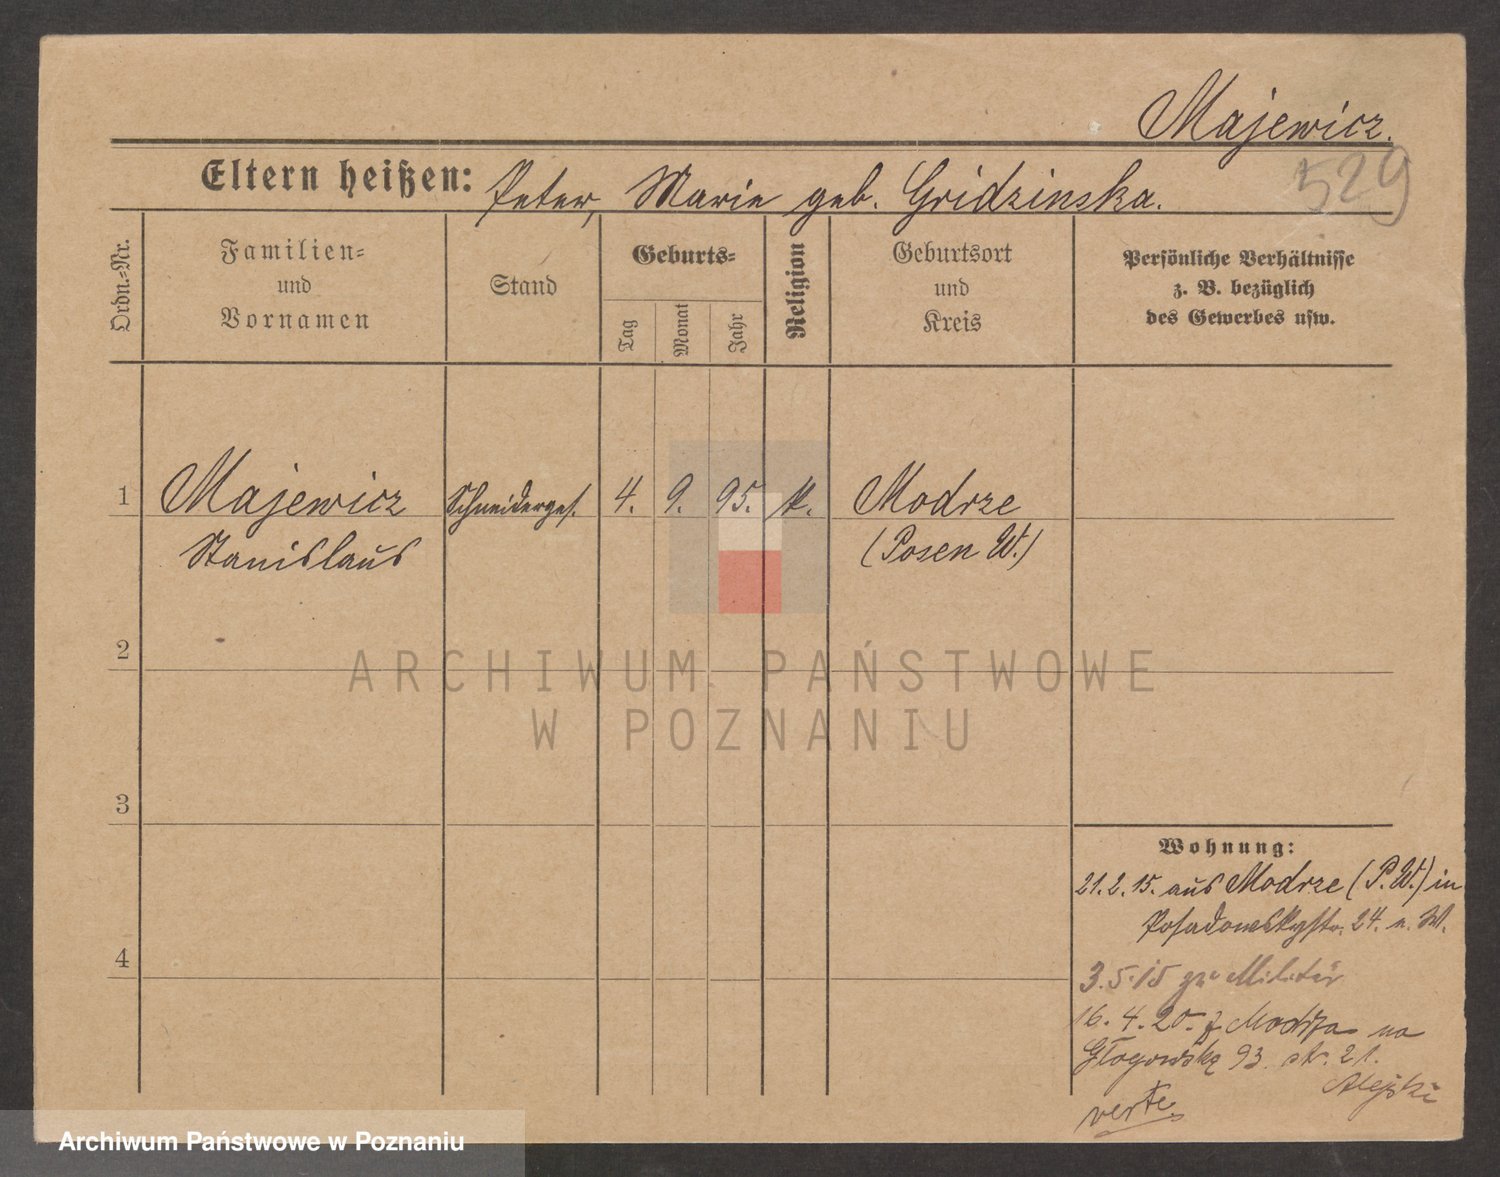 Majewicz.
529
Eltern heißen: Peter, Marie geb. Gridzinska.
Ordn.=Nr.
Familien=
und
Vornamen
Stand
Geburts=
Tag
Monat
Jahr
Religion
Geburtsort
und
Kreis
Persönliche Verhältnisse
z. B. bezüglich
des Gewerbes usw.
1 Majewicz Schneiderges. 4. 9. 95. k. Modrze
Stanislaus (Posen W.)
2
ARCHIWUM PAŃSTWOWE
W POZNANIU
3
Wohnung:
21.2.15. aus Modrze (P.W.) in
Posadowskystr. 24. n. W.
4
3.5.15 zu Militär
16.4.20. z Modrza na
Głogowską 93. str. 21.
verte
Archiwum Państwowe w Poznaniu